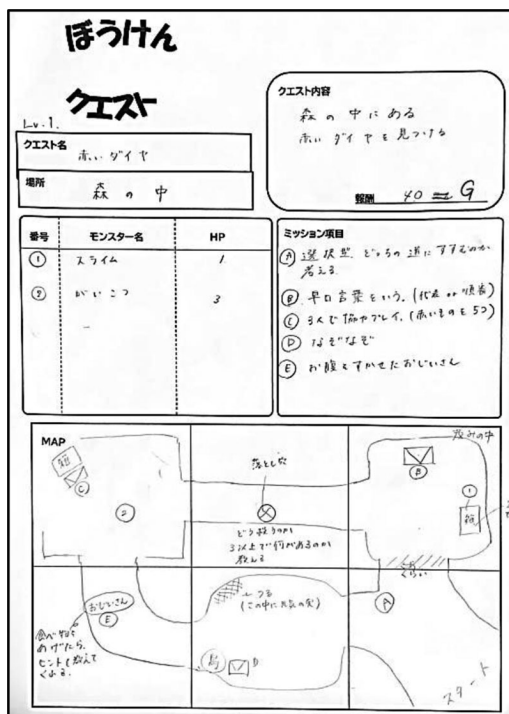 ぼうけん
クエスト
Lv.1.
クエスト名
赤いダイヤ
場所
森の中
クエスト内容
森の中にある
赤いダイヤを見つける
報酬 40 G
番号 モンスター名 HP
① スライム 1
② がいこつ 3
ミッション項目
Ⓐ 選択型 どっちの道にすすむのか
考える
Ⓑ 早口言葉をいう。(代表 or 順番)
Ⓒ 3人で協力プレイ。(赤いものを5コ)
Ⓓ なぞなぞ
Ⓔ お腹をすかせたおじいさん
MAP
箱
C
2
落とし穴
どう找うのか
3以上で何があるのか
教える
茂みの中
B
1
箱
くらい
A
スタート
おじいさん
E
食べ物を
あげたら、
ヒントを教えて
くれる。
つる
D